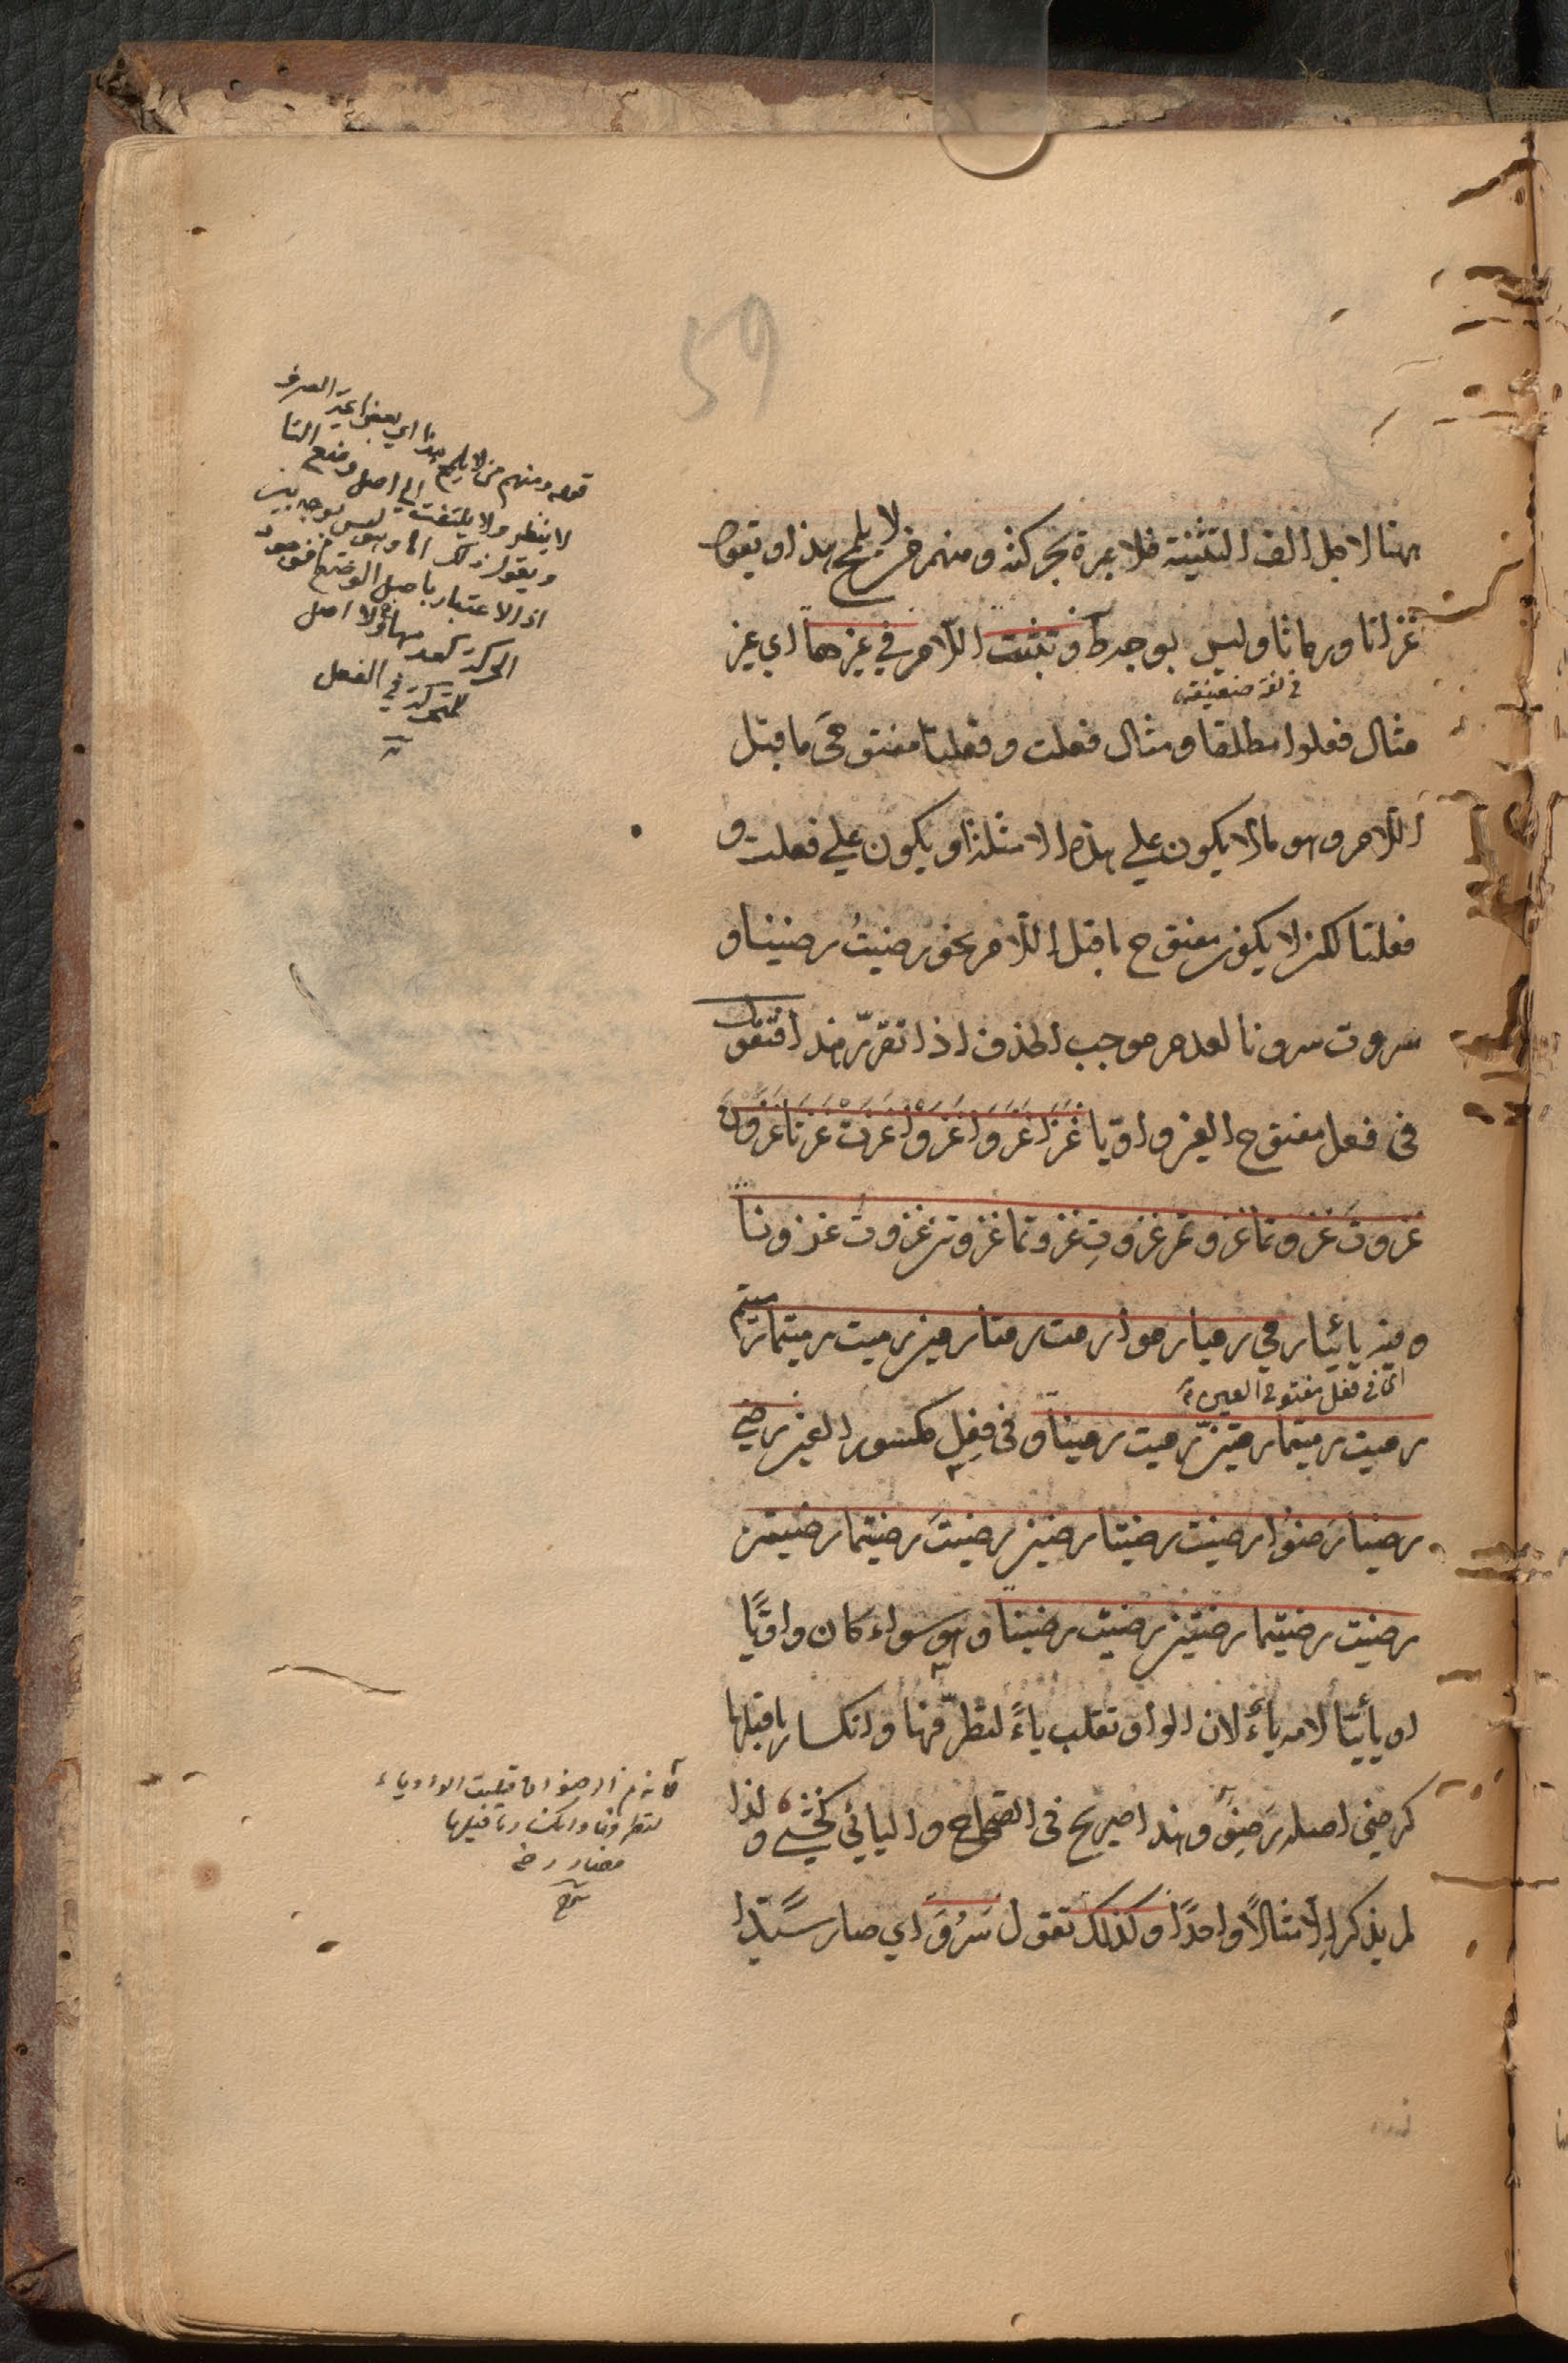 59
هنا لاجل الف التثنية فلا عبرة بحركته ومنهم من لا يلمح هذا ويقول
غزاتا ورماتا وليس بوجه ط وتثبت اللام في غيرهما اي غير
في لغة ضعيفة
مثال فعلوا مطلقا ومثال فعلت وفعلتا مفتوحَي ما قبل
اللام وهو ما لا يكون علي هذه الامثلة او يكون علي فعلت و
فعلتا لكن لا يكون مفتوح ما قبل اللام نحو رضيتُ رضينا و
سروت سرونا لعدم موجب الحذف اذا تقرّر هذا فتقول
في فعل مفتوح العين واويّا غَزَا غَزَوَا غَزَوْا غَزَتْ غَزَتَا غَزَوْنَ
غزوتَ غزوتما غزوتم غزوتِ غزوتما غزوتن غزوت غزونا
ومنه يائيّا رمي رميا رموا رمت رمتا رمين رميت رميتما رميتم
اي في فعل مفتوح العين
رميت رميتما رميتنّ رميت رمينا وفي فعِل مكسور العين رضي
رضيا رَضُوْا رضيت رضيتا رضين رضيتَ رضيتما رضيتم
رضيت رضيتما رضيتن رضيت رضينا وهو سواء كان واويًّا
او يائيّا لامه ياءٌ لان الواو تقلب ياءً لتطرّفها وانكسار ما قبلها
كرضي اصله رَضِوَ وهذا صريح في الصّحاح واليائي كخَشِيَ ولذا
لم يذكر إلّا مثالًا واحدًا وكذلك تقول سَرُوَ اي صار سَيّدا
قوله ومنهم من لا يلمح هذا اي بعض ائمة الصرف
لا ينظر ولا يلتفت الي اصل وضع التا
ويقول ذلك الا وهو ليس بوجه
اذ الاعتبار باصل الوضع فوجود
الحركة كعدمها ولا اصل
للحركة في الفعل
لانه من الرضوان قلبت الواو ياء
لتطرفها وانكسار ما قبلها
فصار رضي